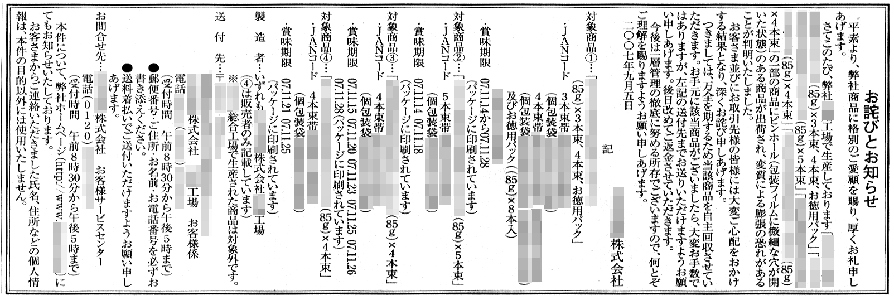 お詫びとお知らせ
平素より、弊社商品に格別のご愛顧を賜り、厚くお礼申し
あげます。
さてこのたび、弊社 工場で生産しております「
(85g)×3本束、4本束、お徳用パック」、「
(85g)×4本束 (85g)×5本束」「 (85g)
×4本束」の一部の商品にピンホール(包装フィルムに微細な穴が開
いた状態)のある商品が出荷され、変質による膨張の恐れがある
ことが判明いたしました。
お客さま並びにお取引先様の皆様には大変ご心配をおかけ
する結果となり、深くお詫び申しあげます。
つきましては、万全を期するため当該商品を自主回収させてい
ただきます。お手元に該当商品がございましたら、大変お手数で
はありますが、左記の送付先までお送りいただけますようお願
い申しあげます。後日改めてご返金させていただきます。
今後は一層管理の徹底に努める所存でございますので、何とぞ
ご理解を賜りますようお願い申しあげます。
二〇〇七年九月五日
株式会社
記
対象商品①:「 (85g)×3本束、4本束、お徳用パック」
・JANコード 3本束帯
4本束帯
個包装袋
及びお徳用パック( (85g)×8本入)
・賞味期限 07.11.14から07.11.28
(パッケージに印刷されています)
対象商品②:「 (85g)×5本束」
・JANコード 5本束帯
個包装袋
・賞味期限 07.11.18
(パッケージに印刷されています)
対象商品③:「 (85g)×4本束」
・JANコード 4本束帯
個包装袋
・賞味期限 07.11.19 07.11.20 07.11.21 07.11.25 07.11.26
07.11.28(パッケージに印刷されています)
対象商品④:「 (85g)×4本束」
・JANコード 4本束帯
個包装袋
・賞味期限 07.11.21 07.11.25
(パッケージに印刷されています)
製造者:いずれも 株式会社 工場
(④は販売者のみ記載しています)
※ 総合工場で生産された商品は対象外です。
送付先:〒
株式会社 工場 お客様係
電話
(受付時間 午前8時30分から午後5時まで)
●郵便番号・ご住所・お名前・お電話番号を必ずお
書き添えください。
●送料着払いでご送付いただけますようお願い申し
あげます。
お問合せ先: 株式会社 お客様サービスセンター
電話(0120)
(受付時間 午前8時30分から午後5時まで)
本件について、弊社ホームページ(http://www. )に
てもお知らせいたしております。
お客さまからご連絡いただきました氏名、住所などの個人情
報は、本件の目的以外には使用いたしません。